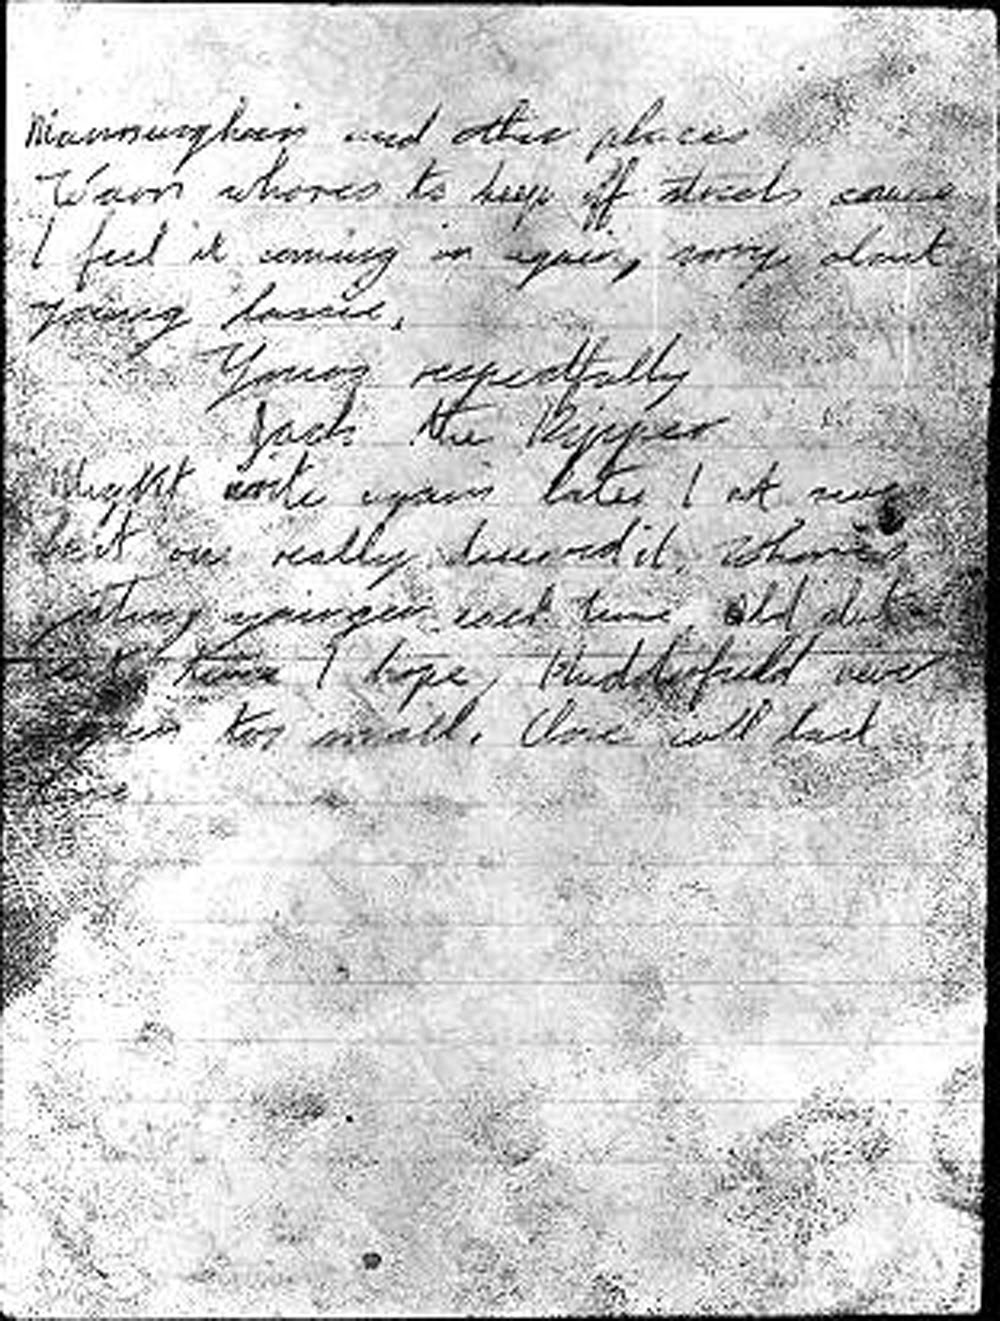 Manningham and other places
Warn whores to keep off streets cause
I feel it coming on again, sorry about
young lassie.
Yours respectfully
Jack the Ripper
Might write again later I
last one really deserved it. Whores
getting younger each time. Old slut
next time I hope, Huddersfield never
again too small. Close call last
one